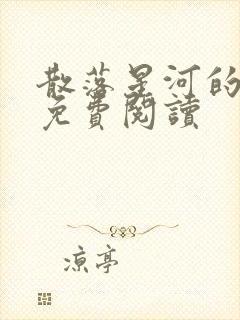 散落星河的
免費閱讀
涼亭